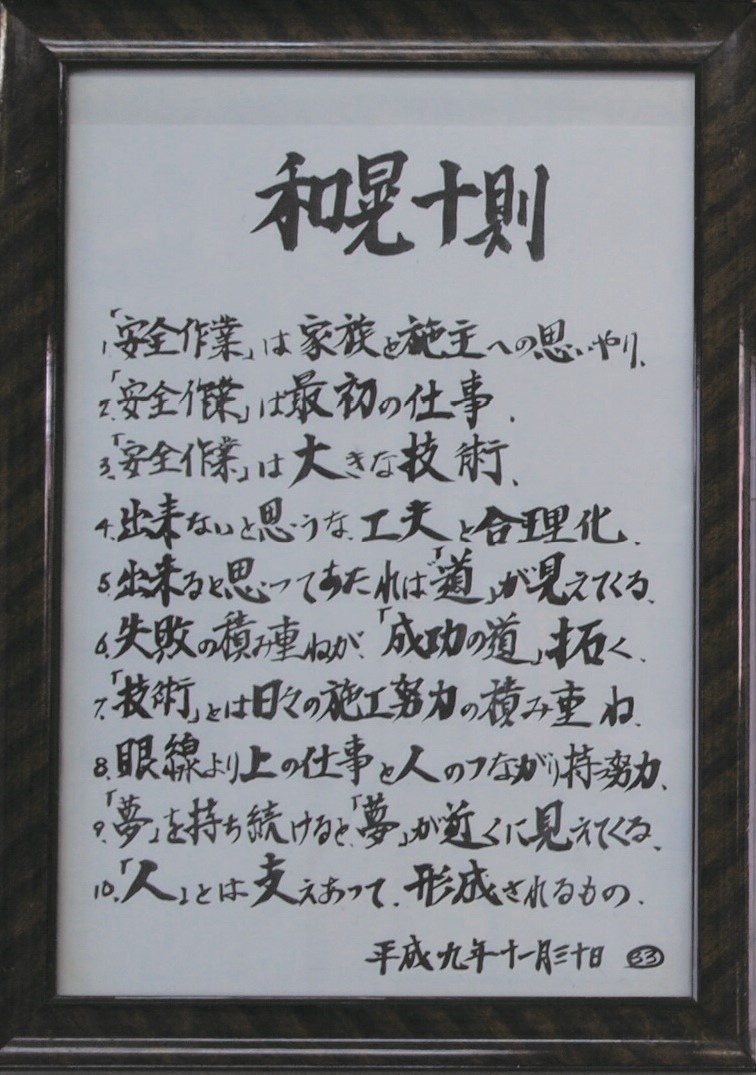 和晃十則
1.「安全作業」は家族と施主への思いやり、
2.「安全作業」は最初の仕事、
3.「安全作業」は大きな技術、
4.出来ないと思うな、工夫と合理化、
5.出来ると思ってあたれば「道」が見えてくる、
6.失敗の積み重ねが、「成功の道」拓く、
7.「技術」とは日々の施工努力の積み重ね、
8.眼線より上の仕事と人のつながり持つ努力、
9.「夢」を持ち続けると、「夢」が近くに見えてくる、
10.「人」とは支えあって、形成されるもの、
平成九年十一月三十日 33